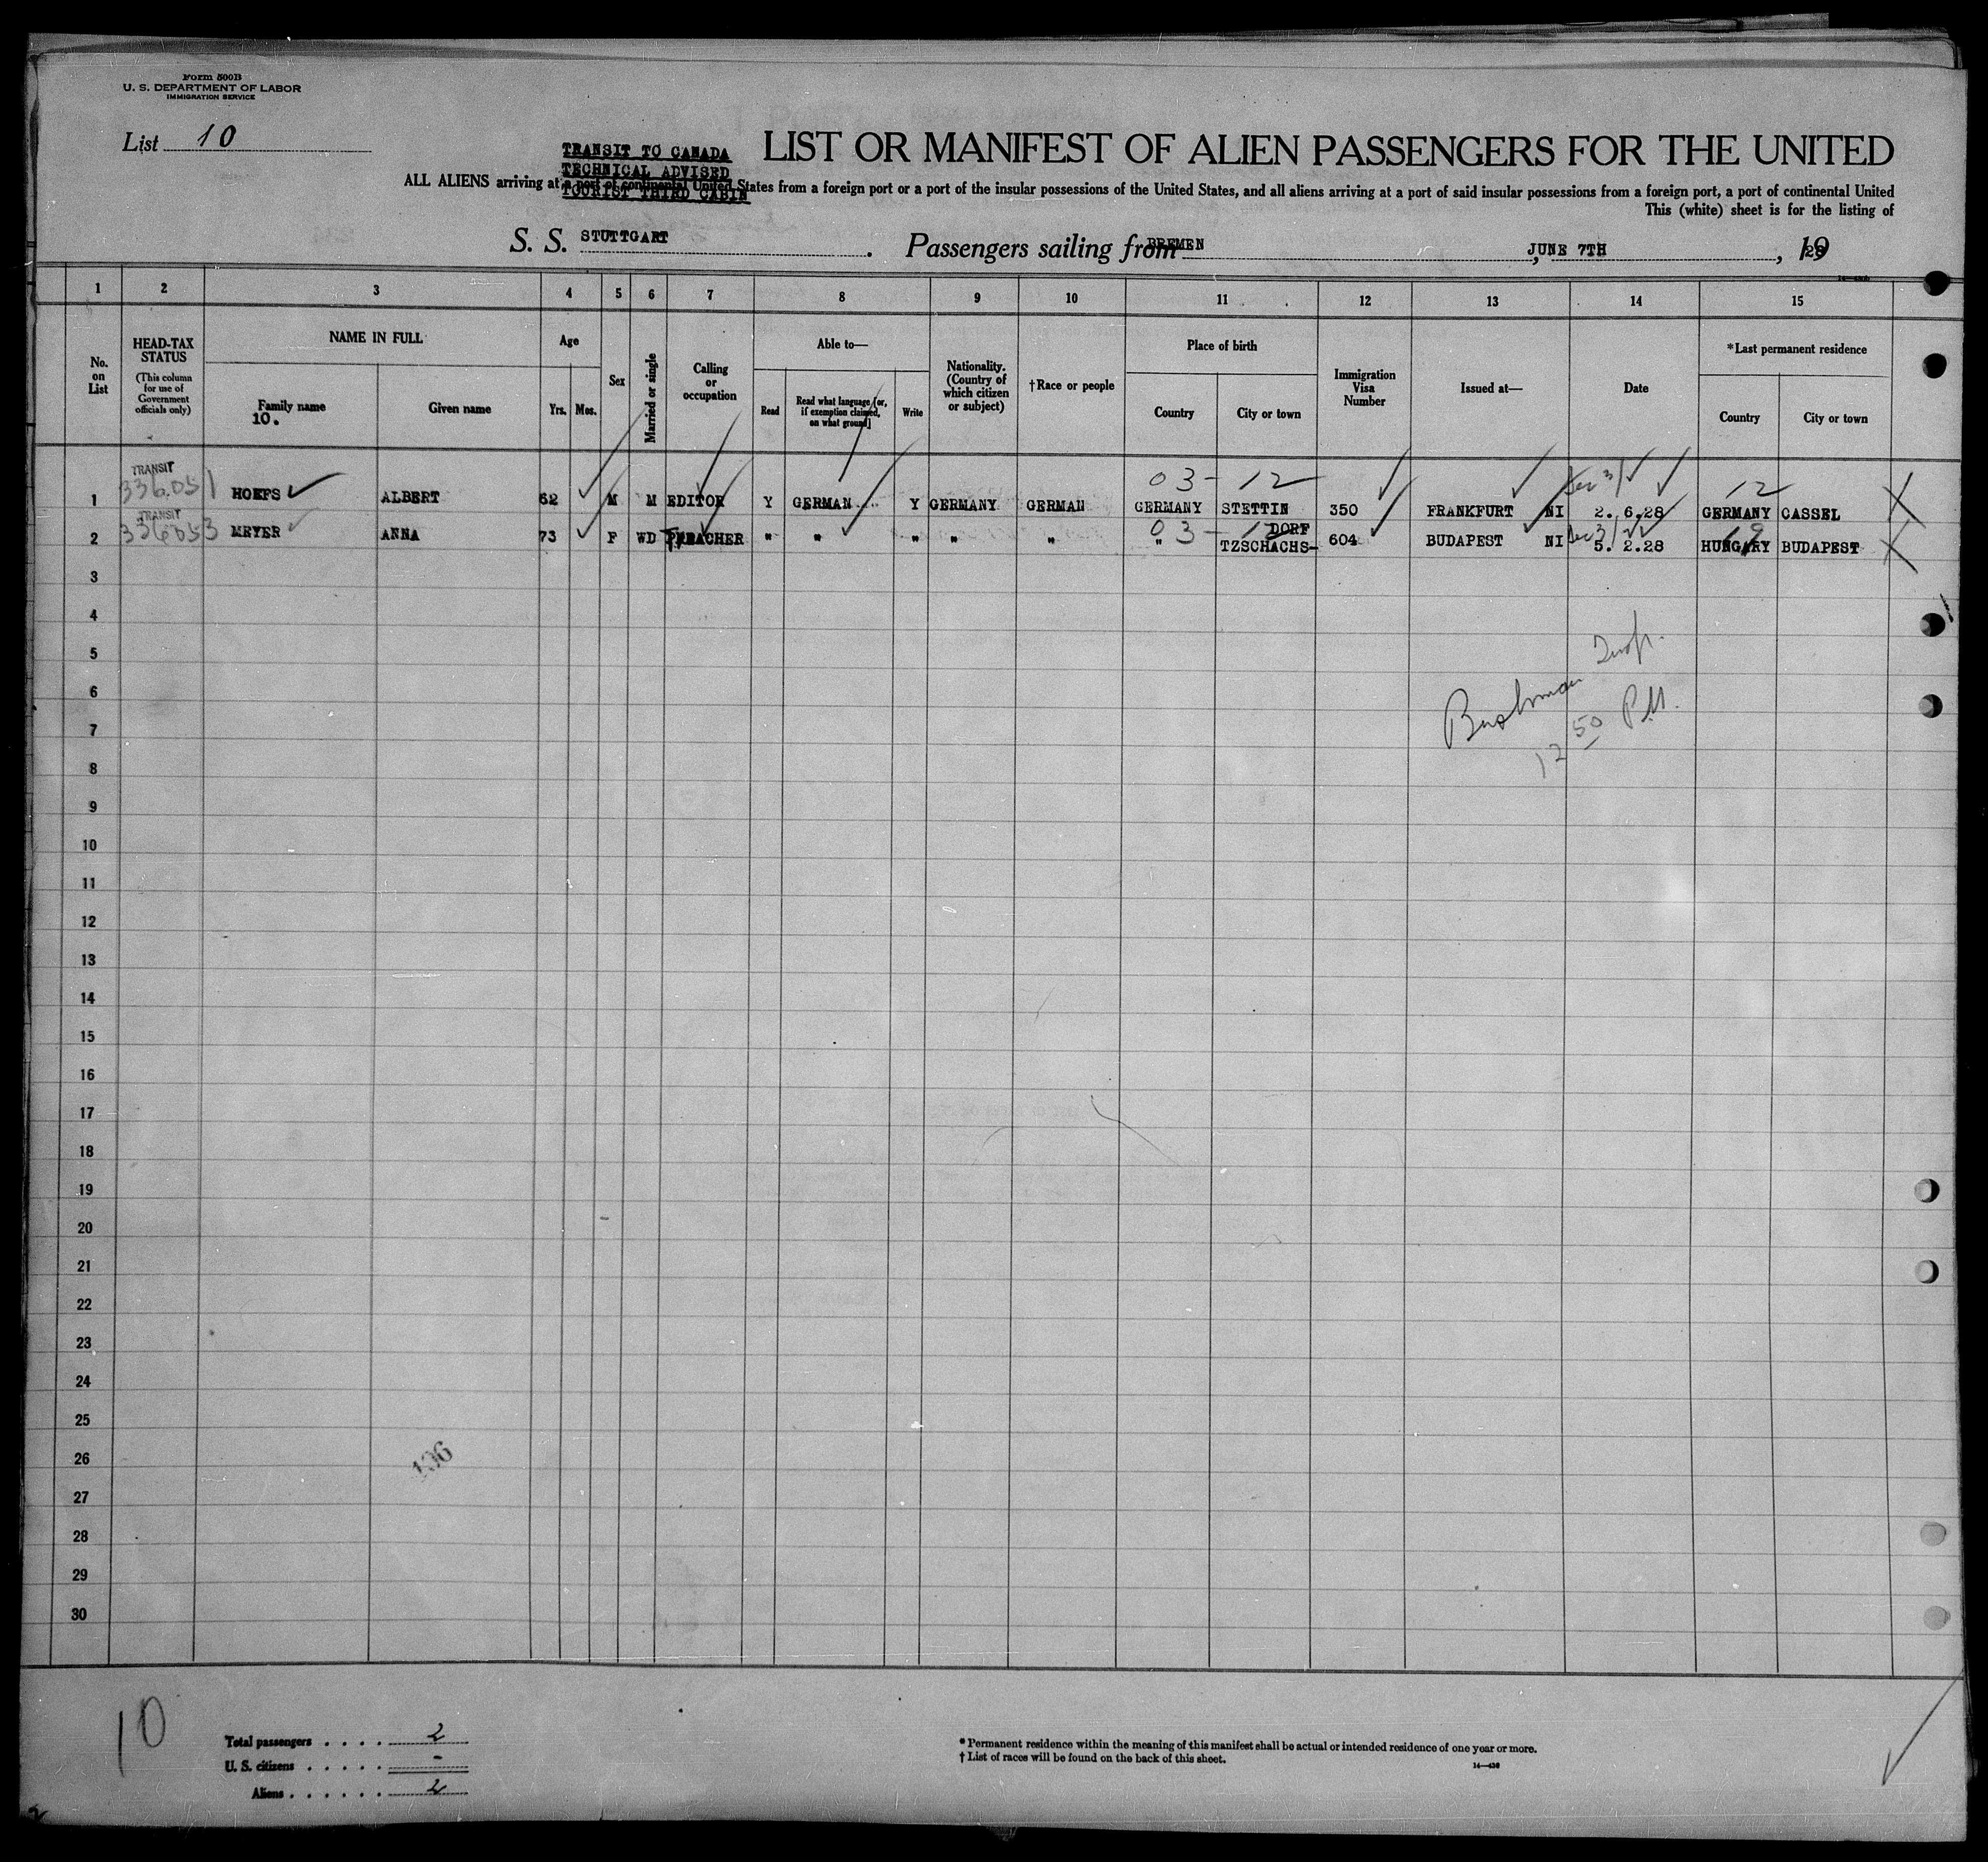 Form 500B
U. S. DEPARTMENT OF LABOR
IMMIGRATION SERVICE
List 10
TRANSIT TO CANADA
TECHNICAL ADVISED
TOURIST THIRD CABIN
LIST OR MANIFEST OF ALIEN PASSENGERS FOR THE UNITED
ALL ALIENS arriving at a port of continental United States from a foreign port or a port of the insular possessions of the United States, and all aliens arriving at a port of said insular possessions from a foreign port, a port of continental United
This (white) sheet is for the listing of
S. S. STUTTGART. Passengers sailing from BREMEN, JUNE 7TH, 1928
1 2 3 4 5 6 7 8 9 10 11 12 13 14 15
No. on List
HEAD-TAX STATUS
(This column for use of Government officials only)
NAME IN FULL
Family name
10.
Given name
Age
Yrs. Mos.
Sex
Married or single
Calling or occupation
Able to—
Read
Read what language [or, if exemption claimed, on what ground]
Write
Nationality. (Country of which citizen or subject)
†Race or people
Place of birth
Country
City or town
Immigration Visa Number
Issued at—
Date
*Last permanent residence
Country
City or town
TRANSIT
03-12 12
1 336.051 HOEFS ALBERT 62 M M EDITOR Y GERMAN Y GERMANY GERMAN GERMANY STETTIN 350 FRANKFURT NI 2. 6.28 GERMANY CASSEL
TRANSIT
03-12 DORF 19
2 336053 MEYER ANNA 73 F WD " " " " " " TZSCHACHS- 604 BUDAPEST NI 5. 2.28 HUNGARY BUDAPEST
3
4
5
6
7
8
9
10
11
12
13
14
15
16
17
18
19
20
21
22
23
24
25
26
27
28
29
30
Insp.
12 50 P.M.
10
Total passengers . . . . 2
U. S. citizens . . . . . -
Aliens . . . . . . 2
* Permanent residence within the meaning of this manifest shall be actual or intended residence of one year or more.
† List of races will be found on the back of this sheet.